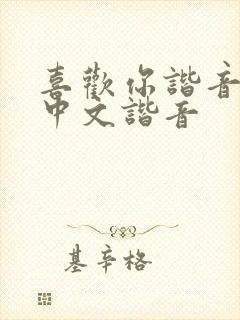 喜歡你諧音
中文諧音
基辛格